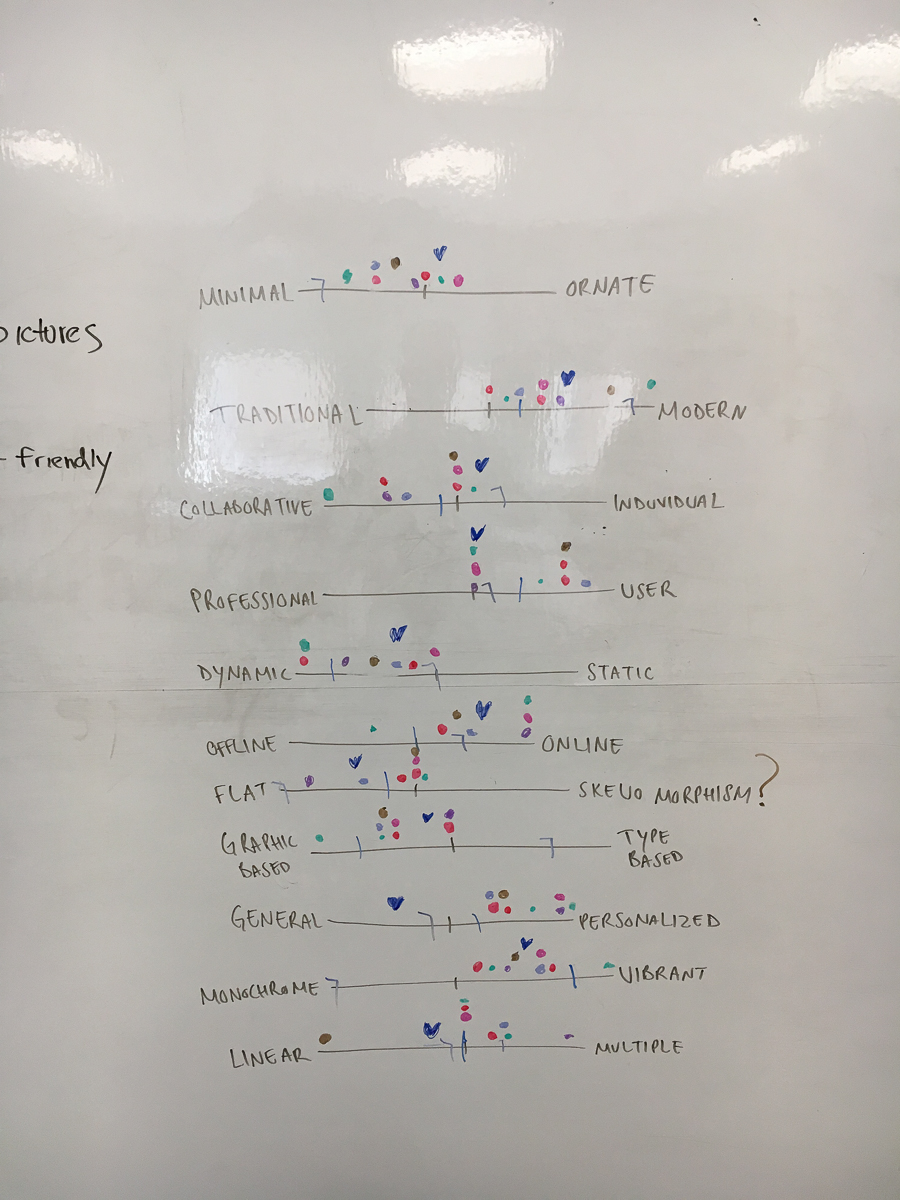 MINIMAL ORNATE
pictures
TRADITIONAL MODERN
- friendly
COLLABORATIVE INDUVIDUAL
PROFESSIONAL USER
DYNAMIC STATIC
OFFLINE ONLINE
FLAT SKEUO MORPHISM?
GRAPHIC BASED TYPE BASED
GENERAL PERSONALIZED
MONOCHROME VIBRANT
LINEAR MULTIPLE